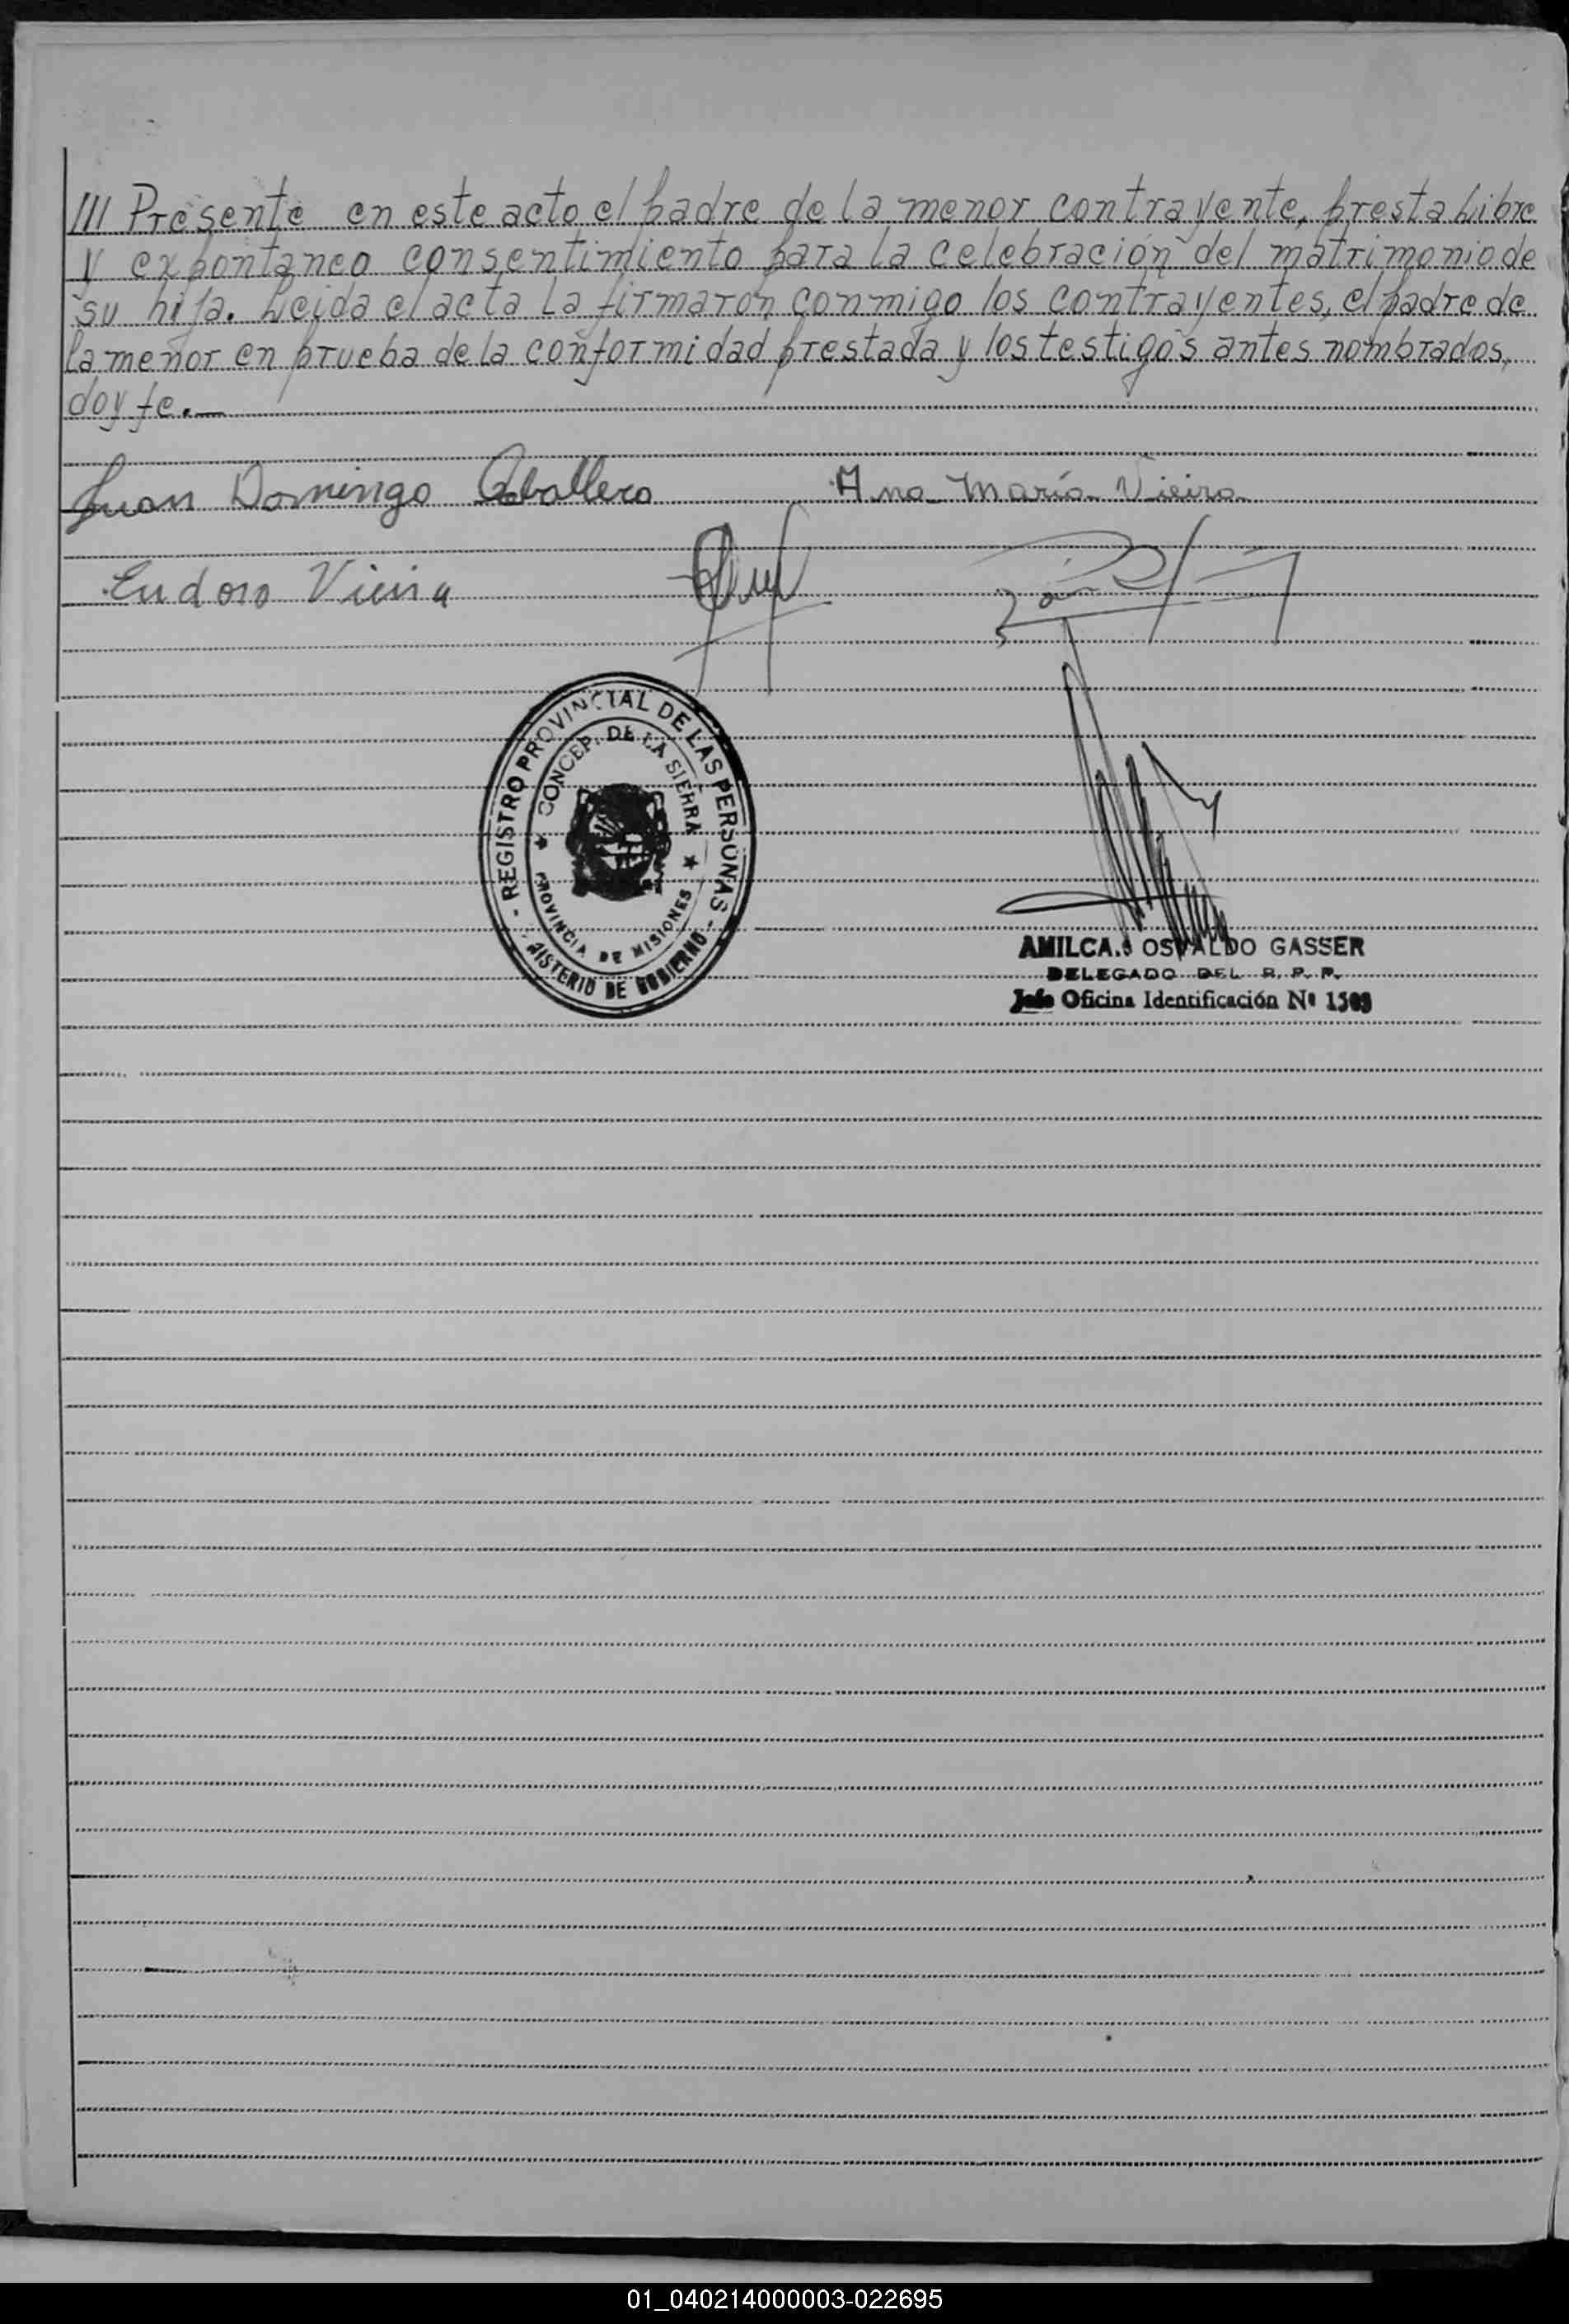 III Presente en este acto el padre de la menor contrayente, presta Libre
y expontaneo consentimiento para la celebración del matrimonio de
su hija. Leida el acta La firmaron conmigo los contrayentes, el padre de
la menor en prueba de la conformidad prestada y los testigos antes nombrados,
doy fe.—
Juan Domingo Caballero Ana María Vieira
Eudoro Vieira
- REGISTRO PROVINCIAL DE LAS PERSONAS -
CONCEP. DE LA SIERRA
PROVINCIA DE MISIONES
NISTERIO DE GOBIERNO
AMILCA. OSVALDO GASSER
DELEGADO DEL R. P. P.
Jefe Oficina Identificación Nº 1503
01_040214000003-022695